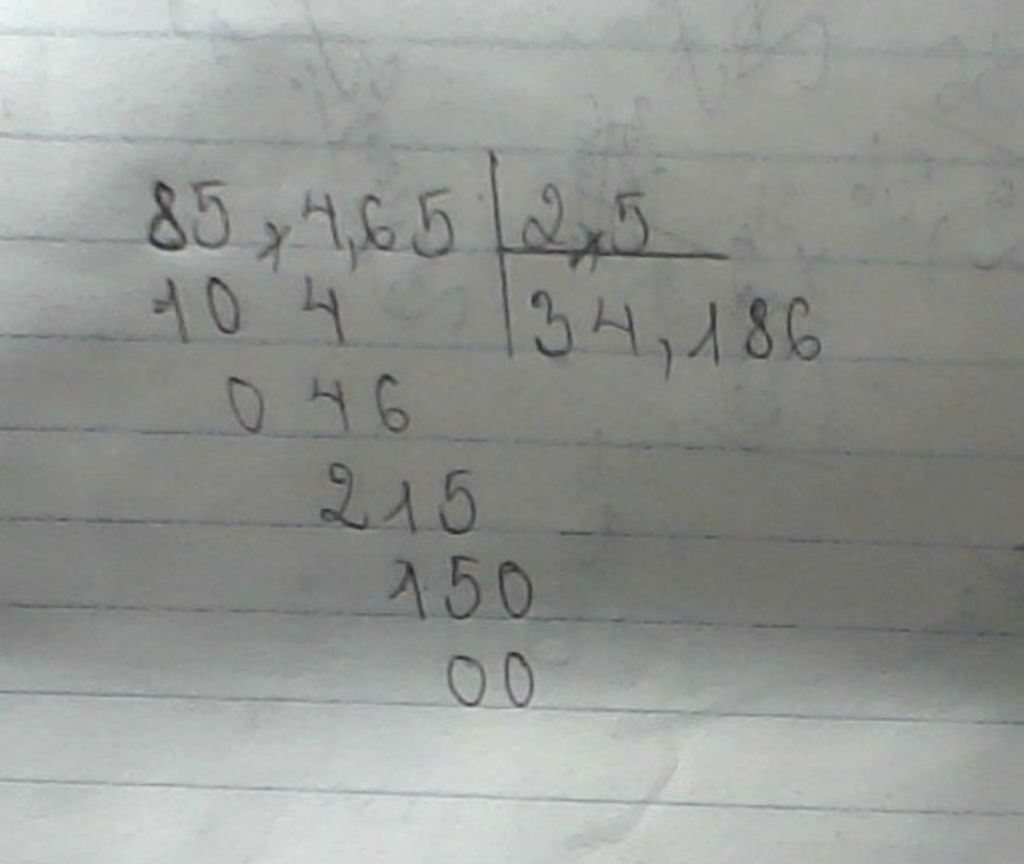 85,4,65 | 2,5
10 4 | 34,186
0 46
215
150
00